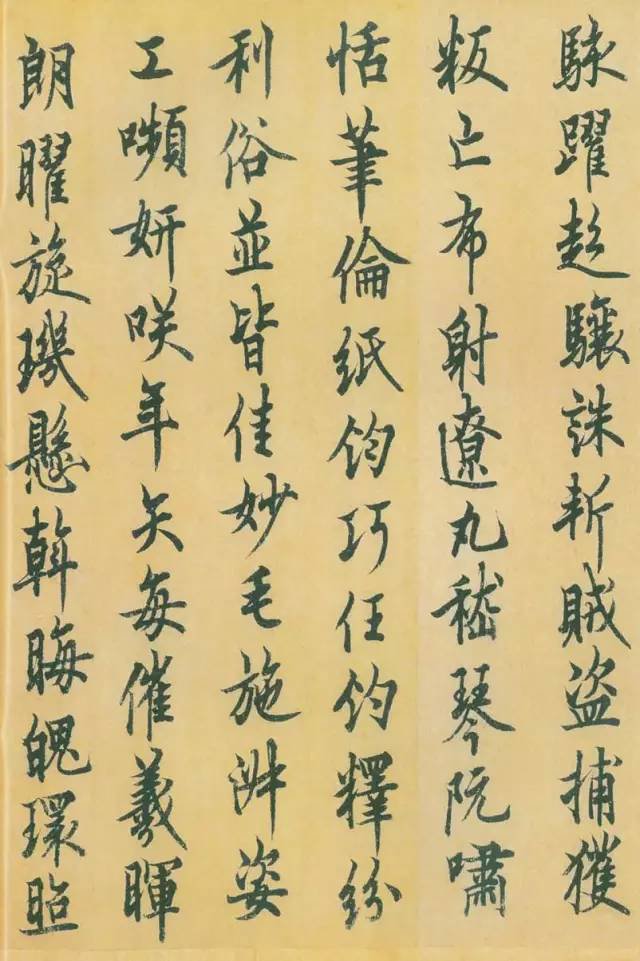 駭躍超驤誅斬賊盗捕獲
叛亡布射遼丸嵇琴阮嘯
恬筆倫紙鈞巧任釣釋紛
利俗並皆佳妙毛施淑姿
工嚬妍咲年矢每催羲暉
朗曜旋璣懸斡晦魄環照